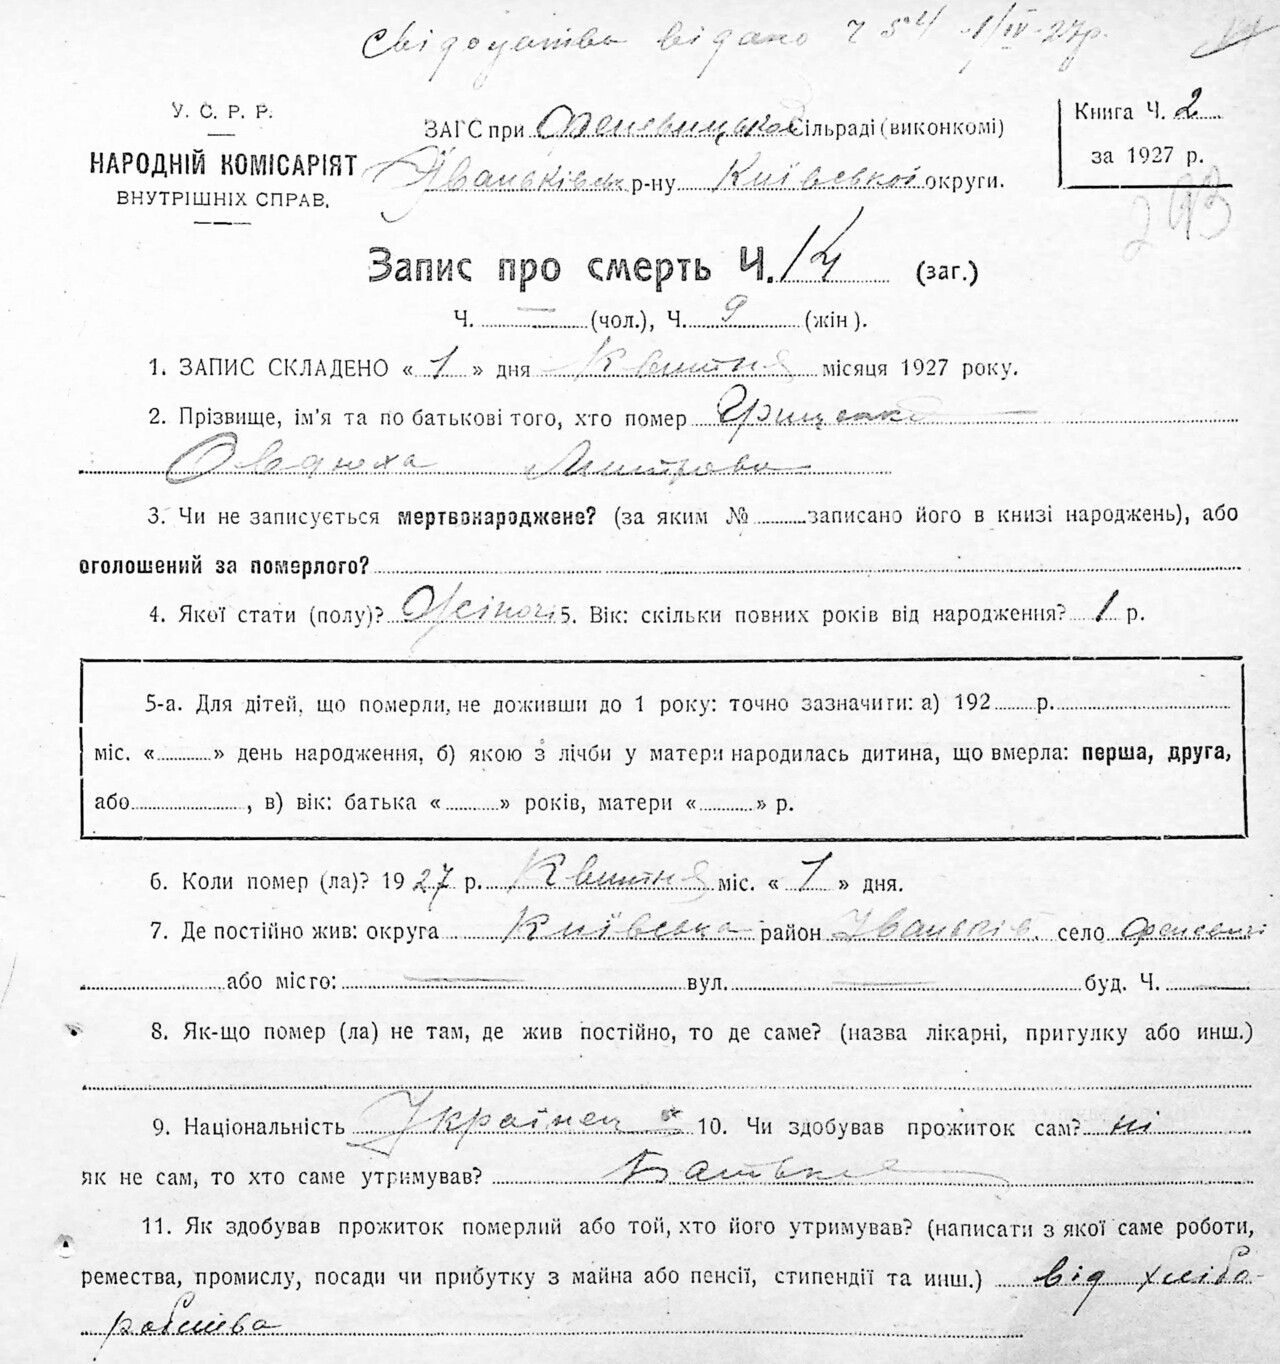 Свідоцтво видано ч 54 1/IV-27р.
У. С. Р. Р.
НАРОДНІЙ КОМІСАРІЯТ
ВНУТРІШНІХ СПРАВ.
ЗАГС при Феневицькой Сільраді (виконкомі)
Іваньківськ р-ну Київської округи.
Книга Ч. 2
за 1927 р.
293
Запис про смерть Ч. 14 (заг.)
Ч. — (чол.), Ч. 9 (жін).
1. ЗАПИС СКЛАДЕНО « 1 » дня Квітня місяця 1927 року.
2. Прізвище, ім'я та по батькові того, хто помер Грищенко
Овдюха Митрова
3. Чи не записується мертвонароджене? (за яким № записано його в книзі народжень), або
оголошений за померлого?
4. Якої стати (полу)? Жіночі 5. Вік: скільки повних років від народження? 1 р.
5-а. Для дітей, що померли, не доживши до 1 року: точно зазначити: а) 192 р.
міс. « » день народження, б) якою з лічби у матери народилась дитина, що вмерла: перша, друга,
або , в) вік: батька « » років, матери « » р.
6. Коли помер (ла)? 1927 р. Квітня міс. « 1 » дня.
7. Де постійно жив: округа Київська район Іваньків. село Феневичі
або місто: — вул. — буд. Ч. —
8. Як-що помер (ла) не там, де жив постійно, то де саме? (назва лікарні, пригулку або инш.)
9. Національність Українец 10. Чи здобував прожиток сам? ні
як не сам, то хто саме утримував? Батько
11. Як здобував прожиток померлий або той, хто його утримував? (написати з якої саме роботи,
ремества, промислу, посади чи прибутку з майна або пенсії, стипендії та инш.) від хлібо-
робства